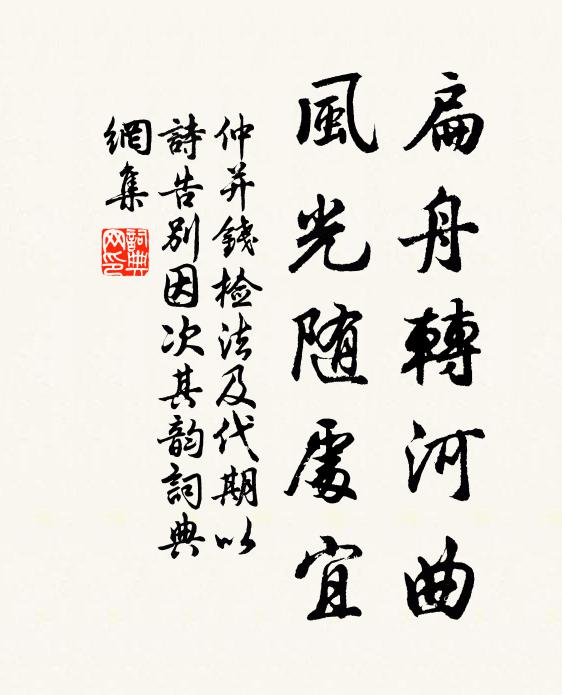 扁舟轉河曲
風光随處宜
仲并錢检法及代期以
詩告别因次其韵詞典
網集
詞典
网印